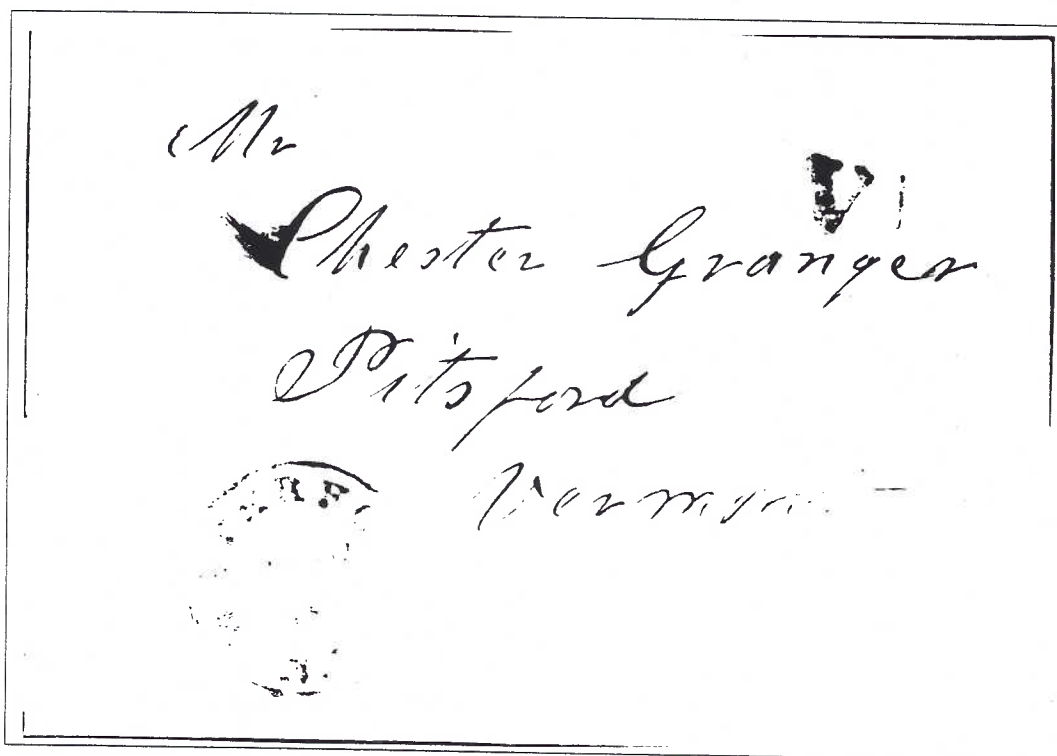 Mr
VI
Chester Granger
Pitsford
Vermont